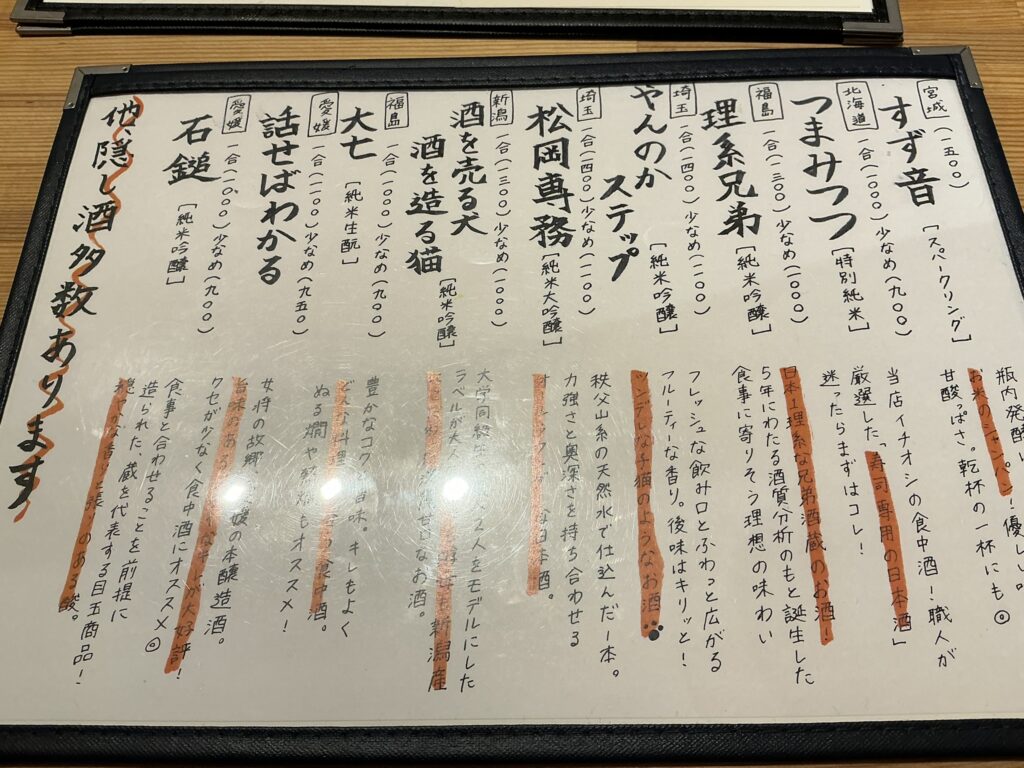 宮城 (一五〇〇)
すず音 [スパークリング]
瓶内発酵
お米のシャンパン!優しい
甘酸っぱさ。乾杯の一杯にも◎
北海道 一合(一〇〇〇)少なめ(九〇〇)
つまみつつ [特別純米]
当店イチオシの食中酒!職人が
厳選した、「寿司専用の日本酒」
迷ったらまずはコレ!
福島 一合(一三〇〇)少なめ(一〇〇〇)
理系兄弟 [純米吟醸]
日本1理系な兄弟酒蔵のお酒!
5年にわたる酒質分析のもと誕生した
食事に寄りそう理想の味わい
埼玉 一合(一四〇〇)少なめ(一一〇〇)
やんのか
ステップ [純米吟醸]
フレッシュな飲み口とふわっと広がる
フルーティーな香り。後味はキリッと!
ツンデレな子猫のようなお酒
埼玉 一合(一四〇〇)少なめ(一一〇〇)
松岡専務 [純米大吟醸]
秩父山系の天然水で仕込んだ一本。
力強さと奥深さを持ち合わせる
な日本酒。
新潟 一合(一三〇〇)少なめ(一〇〇〇)
酒を売る犬
酒を造る猫 [純米吟醸]
大学同級生 2人をモデルにした
ラベルが犬 新潟産
お酒。
福島 一合(一〇〇〇)少なめ(九〇〇)
大七 [純米生酛]
豊かなコク 旨味。キレもよく
どんな料理 食中酒。
ぬる燗や もオススメ!
愛媛 一合(一一〇〇)少なめ(九五〇)
話せばわかる
女将の故郷 愛媛の本醸造酒。
旨味のある が大好評!
クセが少なく食中酒にオススメ◎
愛媛 一合(一〇〇〇)少なめ(九〇〇)
石鎚 [純米吟醸]
食事と合わせることを前提に
造られた、蔵を代表する目玉商品!
な香りと張りのある酸。
他、隠し酒多数あります